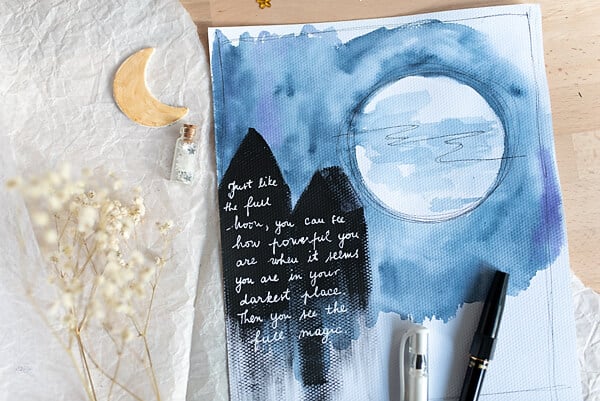 Just like
the full
moon, you can see
how powerful you
are when it seems
you are in your
darkest place.
Then you see the
full magic